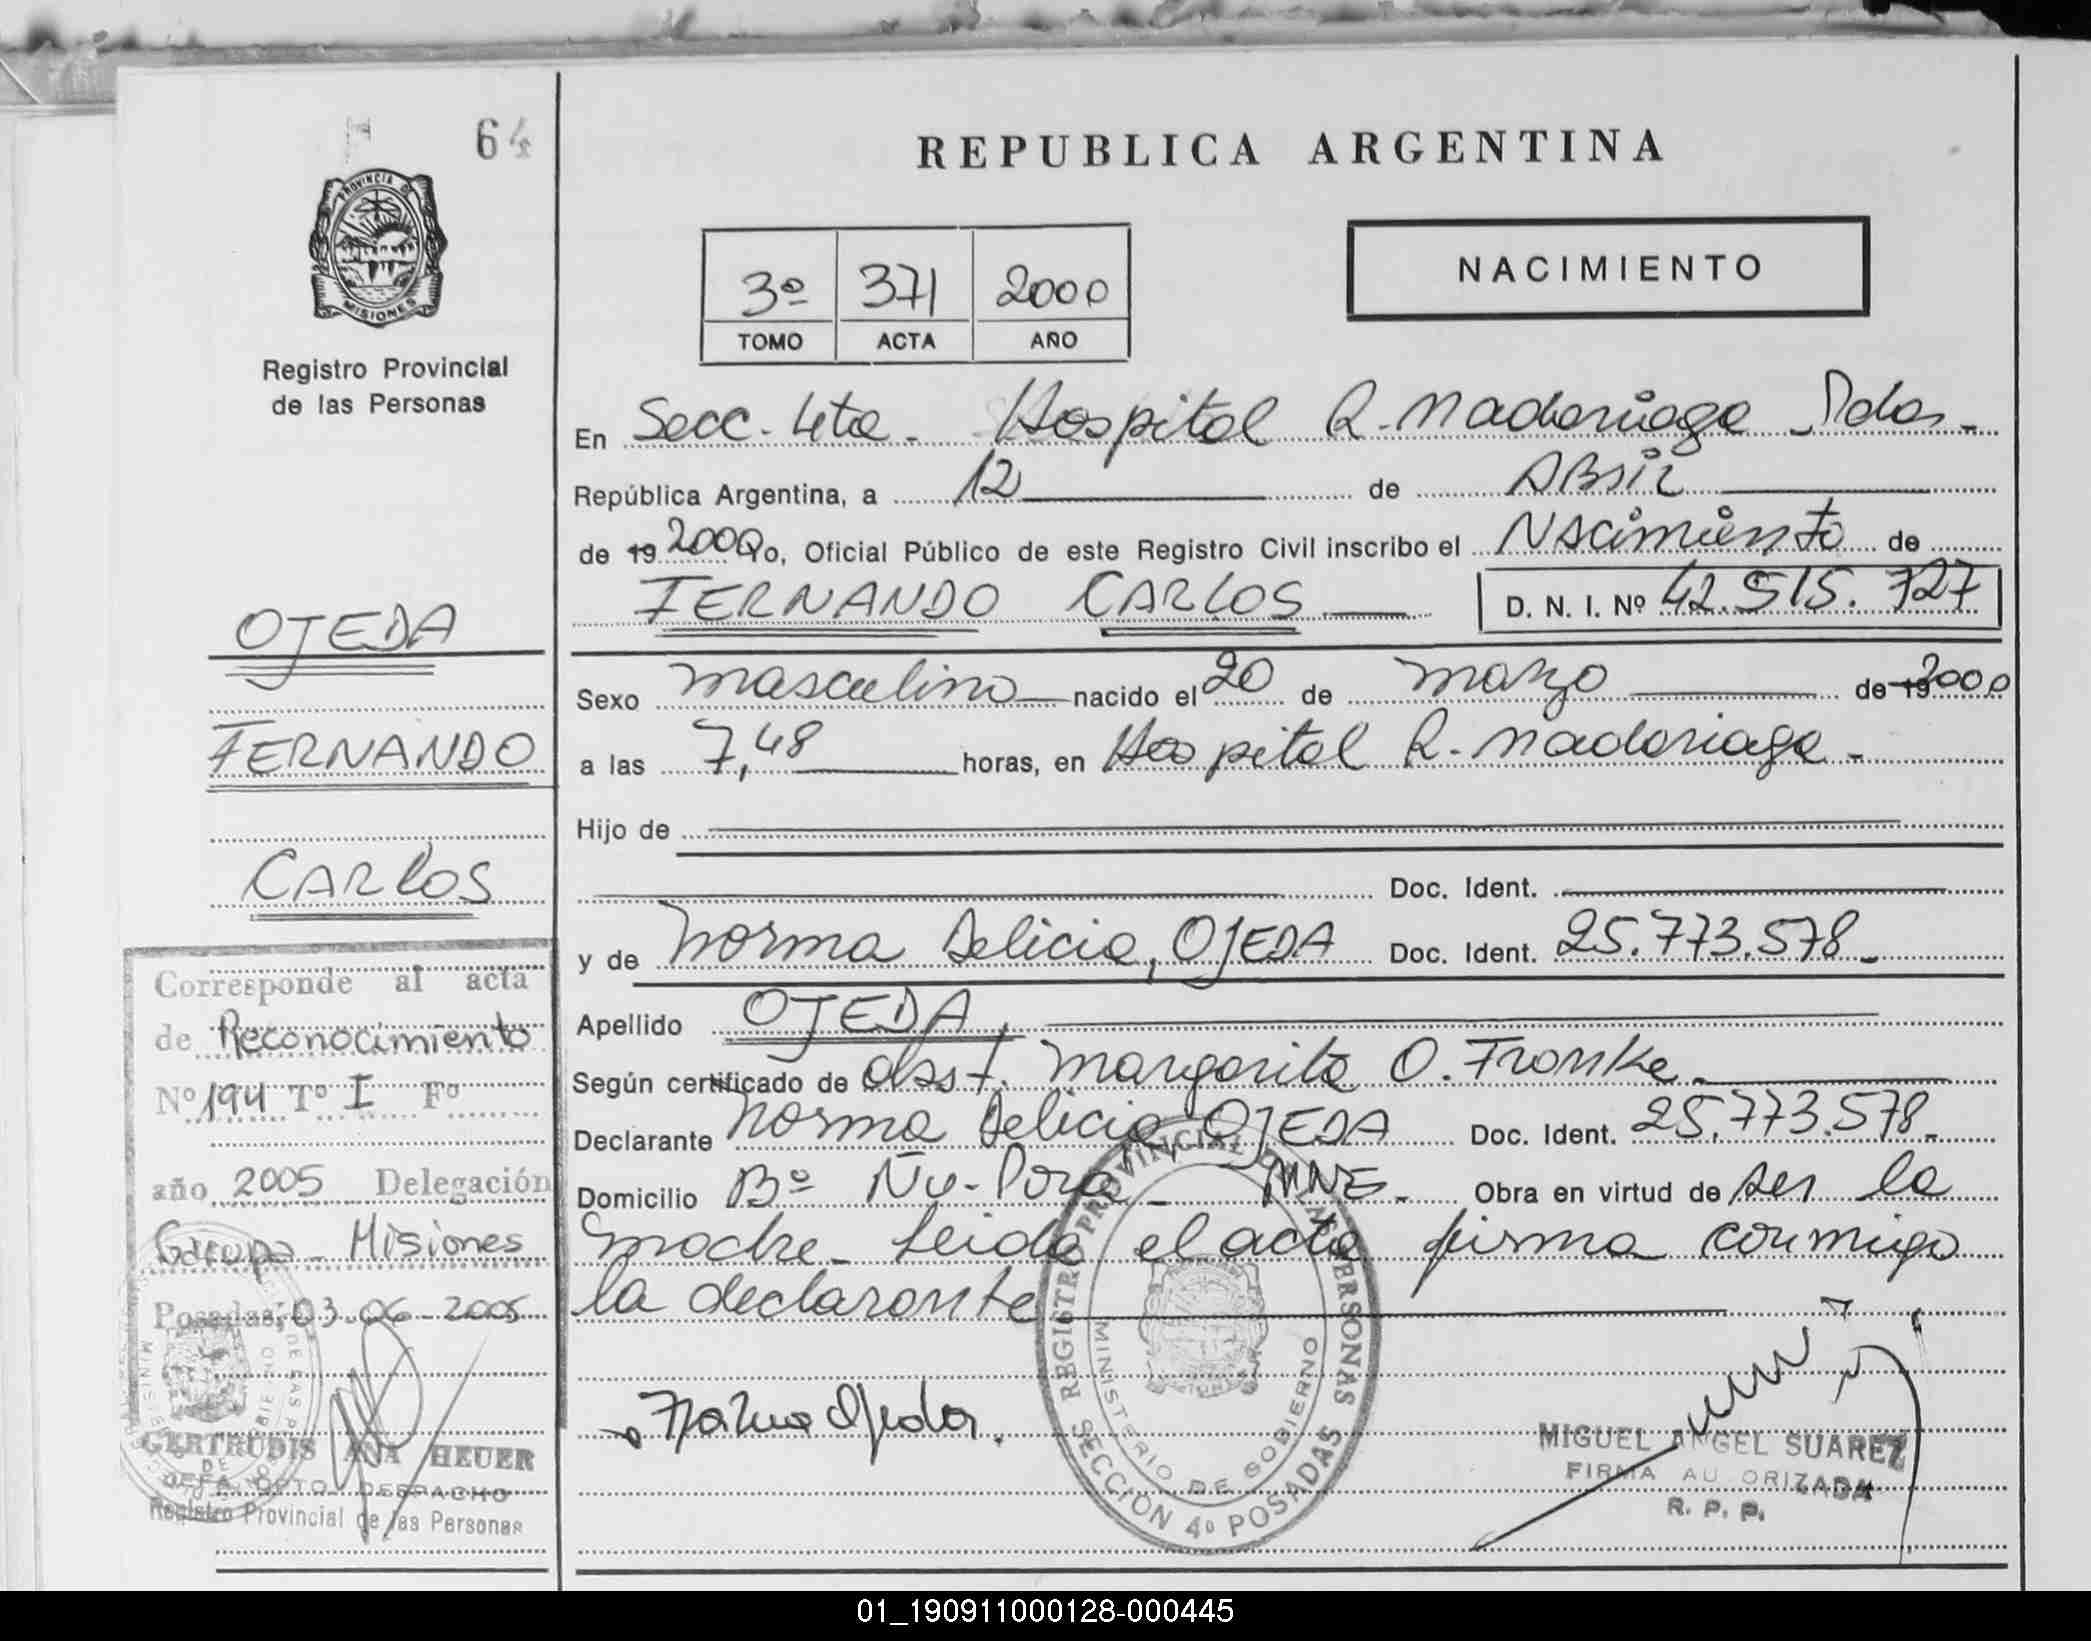 64
PROVINCIA DE
MISIONES
Registro Provincial
de las Personas
OJEDA
FERNANDO
CARLOS
Corresponde al acta
de Reconocimiento
Nº 194 Tº I Fº
año 2005 Delegación
Misiones
Posadas, 03-06-2005
GERTRUDIS ANA HEUER
JEFA DPTO. DESPACHO
Registro Provincial de las Personas
REPUBLICA ARGENTINA
3º 371 2000
TOMO ACTA AÑO
NACIMIENTO
En Secc. 4ta. Hospital R. Madariaga - Pdas.-
República Argentina, a 12 de ABRIL
de 19 2000 Yo, Oficial Público de este Registro Civil inscribo el NACimiento de
FERNANDO CARLOS D. N. I. Nº 42.515.727
Sexo masculino nacido el 20 de marzo de 19 2000
a las 7,48 horas, en Hospital R. Madariaga -
Hijo de
Doc. Ident.
y de Norma Delicia, OJEDA Doc. Ident. 25.773.578.-
Apellido OJEDA,
Según certificado de obst. Margarita O. Fronke.
Declarante Norma Delicia OJEDA Doc. Ident. 25.773.578.-
Domicilio Bº Ñu-Porá - MNES. Obra en virtud de ser la
madre - Leída el acta firma conmigo
la declarante
Norma Ojeda.
REGISTRO PROVINCIAL DE LAS PERSONAS
MINISTERIO DE GOBIERNO
SECCIÓN 4º POSADAS
MIGUEL ANGEL SUAREZ
FIRMA AUTORIZADA
R. P. P.
01_190911000128-000445